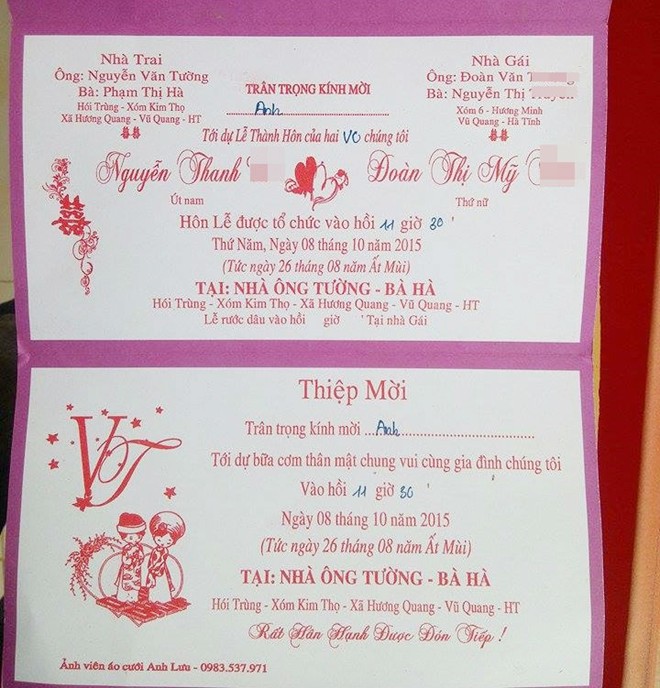 Nhà Trai
Ông: Nguyễn Văn Tường
Bà: Phạm Thị Hà
Hói Trùng - Xóm Kim Thọ
Xã Hương Quang - Vũ Quang - HT
Nhà Gái
Ông: Đoàn Văn
Bà: Nguyễn Thị
Xóm 6 - Hương Minh
Vũ Quang - Hà Tĩnh
TRÂN TRỌNG KÍNH MỜI
Anh
Tới dự Lễ Thành Hôn của hai VC chúng tôi
Nguyễn Thanh
Út nam
Đoàn Thị Mỹ
Thứ nữ
Hôn Lễ được tổ chức vào hồi 11 giờ 30 '
Thứ Năm, Ngày 08 tháng 10 năm 2015
(Tức ngày 26 tháng 08 năm Ất Mùi)
TẠI: NHÀ ÔNG TƯỜNG - BÀ HÀ
Hói Trùng - Xóm Kim Thọ - Xã Hương Quang - Vũ Quang - HT
Lễ rước dâu vào hồi giờ ' Tại nhà Gái
Thiệp Mời
Trân trọng kính mời ...Anh...
Tới dự bữa cơm thân mật chung vui cùng gia đình chúng tôi
Vào hồi 11 giờ 30 '
Ngày 08 tháng 10 năm 2015
(Tức ngày 26 tháng 08 năm Ất Mùi)
TẠI: NHÀ ÔNG TƯỜNG - BÀ HÀ
Hói Trùng - Xóm Kim Thọ - Xã Hương Quang - Vũ Quang - HT
Rất Hân Hạnh Được Đón Tiếp !
VT
Ảnh viên áo cưới Anh Lưu - 0983.537.971